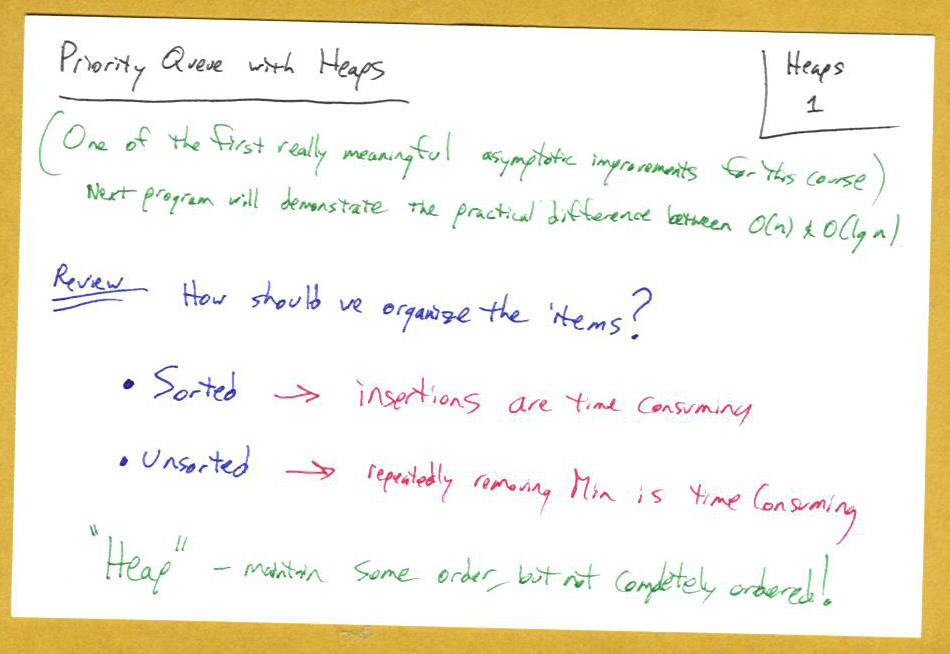 Priority Queue with Heaps
Heaps
1
(One of the first really meaningful asymptotic improvements for this course)
Next program will demonstrate the practical difference between O(n) & O(lg n)
Review How should we organize the items?
• Sorted → insertions are time consuming
• Unsorted → repeatedly removing Min is time consuming
"Heap" - maintain some order, but not completely ordered!